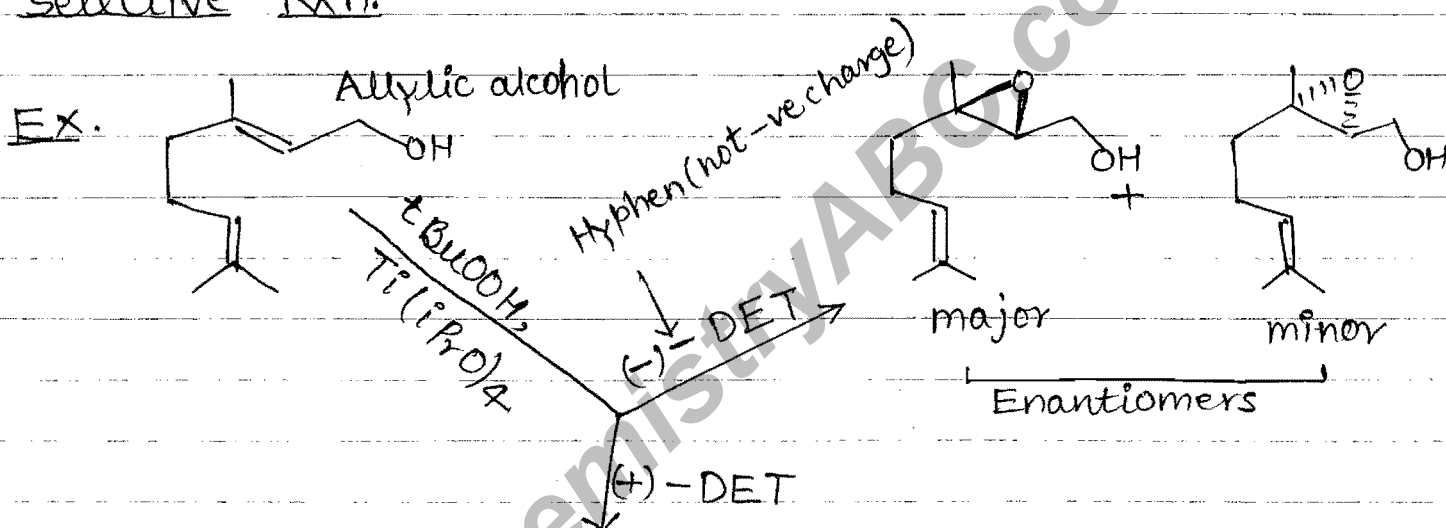 selective Rxn.
Ex.
Allylic alcohol
OH
tBuOOH,
Ti(iPrO)4
Hyphen (not -ve charge)
(-)- DET
(+) - DET
O
OH
+
O
OH
major
minor
Enantiomers
emistryABC.co